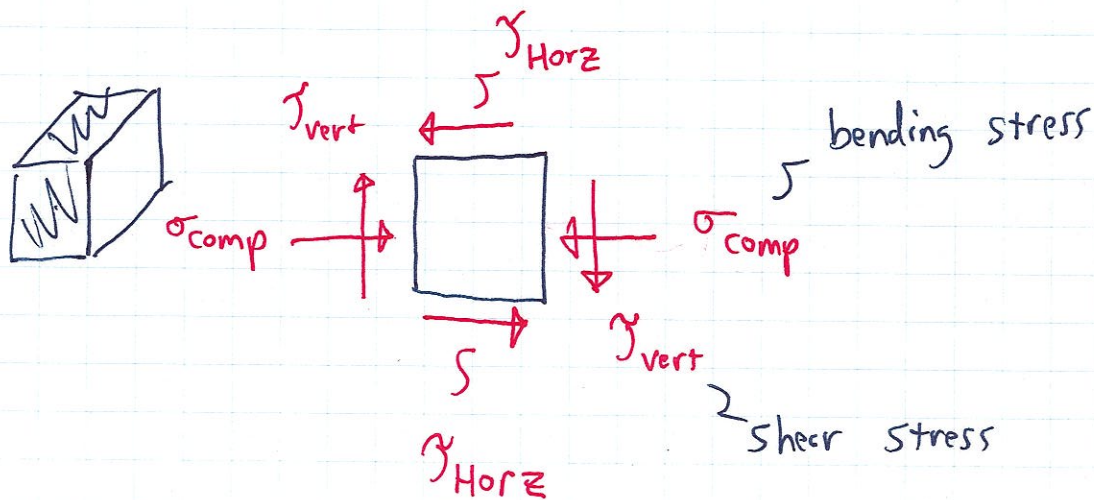 τHorz
τvert
bending stress
σcomp
σcomp
τvert
shear stress
τHorz